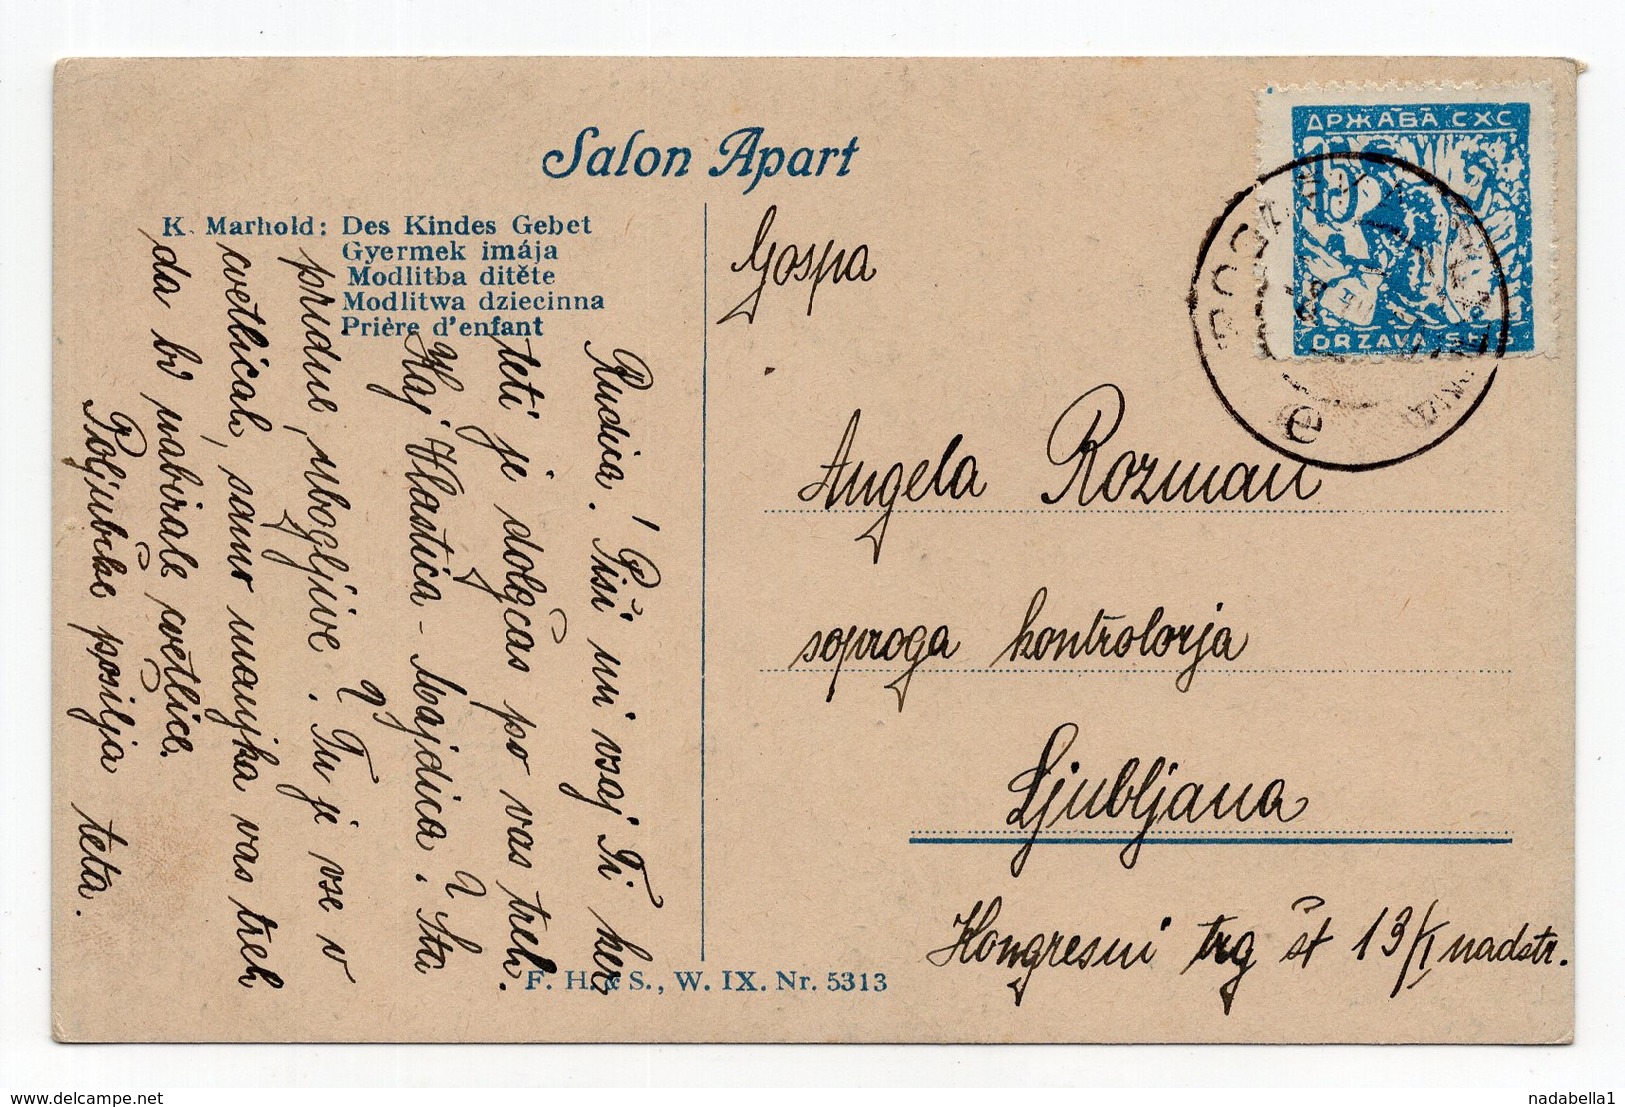 Salon Apart
K. Marhold: Des Kindes Gebet
Gyermek imája
Modlitba ditěte
Modlitwa dziecinna
Prière d'enfant
Rudica! Piši mi vsaj Ti ker
teti je dolgčas po vas treh.
Kaj Vlastica - Majdica? Sta
pridne, ubogljive? Tu je vse v
cvetlicah, samo manjka vas treh
da bi nabirale cvetlice.
Poljubčke pošilja teta.
F. H. & S., W. IX. Nr. 5313
ДРЖАВА СХС
15
DRZAVA SHS
e
Gospa
Angela Rozman
soproga kontrolorja
Ljubljana
Kongresni trg št 13/I nadstr.
nadabella1